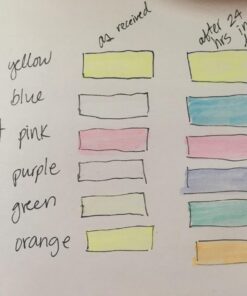 as received
after 24
hrs in
yellow
blue
pink
purple
green
orange